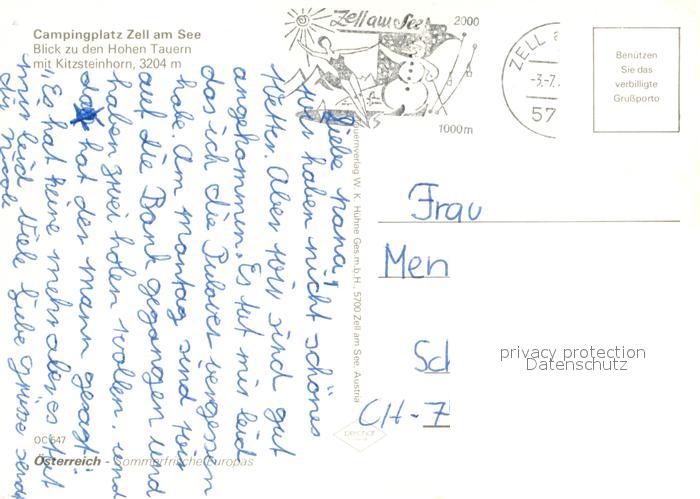 Campingplatz Zell am See
Blick zu den Hohen Tauern
mit Kitzsteinhorn, 3204 m
Zell am See
2000
1000 m
ZELL a
-3.-7.
57
Benützen
Sie das
verbilligte
Grußporto
Liebe Mama,
wir haben nicht schönes
Wetter. Aber wir sind gut
angekommen. Es tut mir leid
das ich die Pulover vergessen
habe. Am montag sind wir
auf die Bank gegangen und
haben zwei holen wollen. und
da hat der mann gesagt
"Es hat keine mehr alles tut
mir leid Viele liebe grüsse sendt
dir Nicole
uernverlag W. K. Hühne Ges.m.b.H., 5700 Zell am See, Austria
Frau
Men
Sch
CH-7
privacy protection
Datenschutz
OC 647
Österreich - Sommerfrische Europas